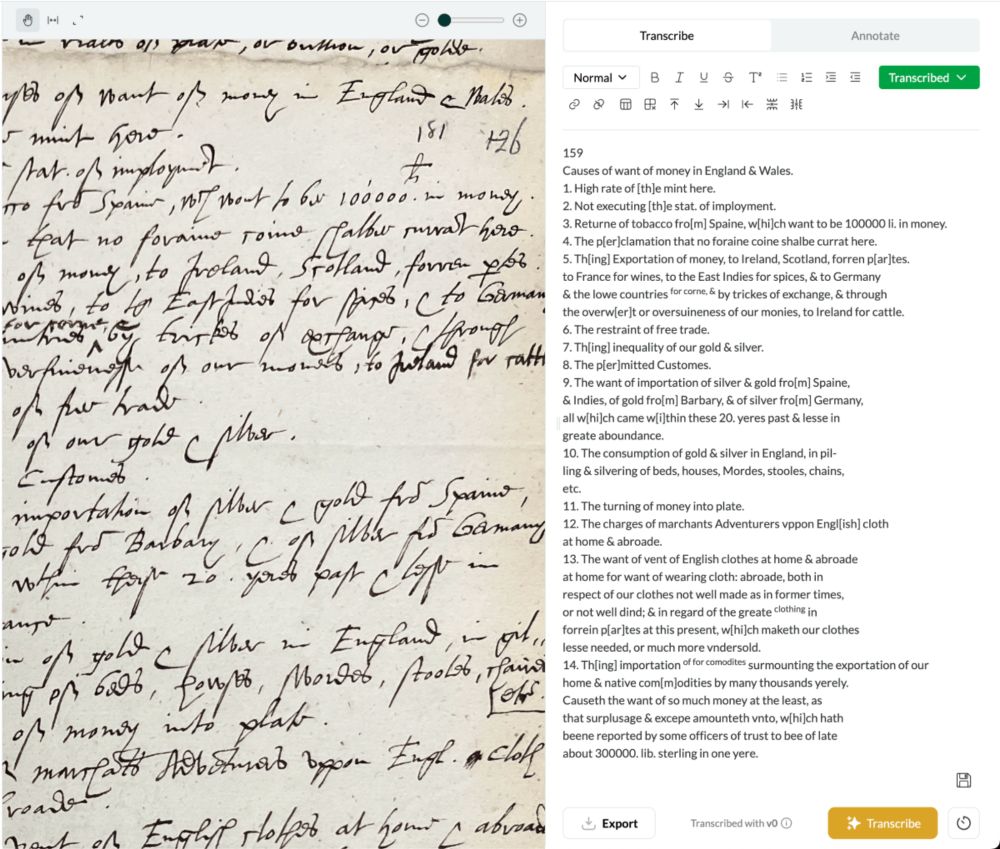 in ... of plate, or bullion, or golde.
of want of money in England & Wales.
mint here.
181 126
stat. of imployment.
li
fro Spaine, wch want to be 100000. in money.
that no foraine coine shalbe currat here.
of money, to Ireland, Scotland, forren ptes.
wines, to the East Indies for spices, & to German
for corne, &
by trickes of exchange, & through
of our monies, to Ireland for catt
of free trade.
of our gold & silver.
Customes.
importation of silver & gold fro Spaine,
gold fro Barbary, & of silver fro Germany
wthin these 20. yeres past & lesse in
of gold & silver in England, in gil,,
of beds, howses, swordes, stooles, chaines
etc.
of money into plate.
marchats Adventurers vppon Engl. cloth
broade.
vent of English clothes at home & abroad
Transcribe
Annotate
Normal B I U S T Transcribed
159
Causes of want of money in England & Wales.
1. High rate of [th]e mint here.
2. Not executing [th]e stat. of imployment.
3. Returne of tobacco fro[m] Spaine, w[hi]ch want to be 100000 li. in money.
4. The p[er]clamation that no foraine coine shalbe currat here.
5. Th[ing] Exportation of money, to Ireland, Scotland, forren p[ar]tes.
to France for wines, to the East Indies for spices, & to Germany
& the lowe countries for corne, & by trickes of exchange, & through
the overw[er]t or oversuineness of our monies, to Ireland for cattle.
6. The restraint of free trade.
7. Th[ing] inequality of our gold & silver.
8. The p[er]mitted Customes.
9. The want of importation of silver & gold fro[m] Spaine,
& Indies, of gold fro[m] Barbary, & of silver fro[m] Germany,
all w[hi]ch came w[i]thin these 20. yeres past & lesse in
greate aboundance.
10. The consumption of gold & silver in England, in pil-
ling & silvering of beds, houses, Mordes, stooles, chains,
etc.
11. The turning of money into plate.
12. The charges of marchants Adventurers vppon Engl[ish] cloth
at home & abroade.
13. The want of vent of English clothes at home & abroade
at home for want of wearing cloth: abroade, both in
respect of our clothes not well made as in former times,
or not well dind; & in regard of the greate clothing in
forrein p[ar]tes at this present, w[hi]ch maketh our clothes
lesse needed, or much more vndersold.
14. Th[ing] importation of for comodites surmounting the exportation of our
home & native com[m]odities by many thousands yerely.
Causeth the want of so much money at the least, as
that surplusage & excepe amounteth vnto, w[hi]ch hath
beene reported by some officers of trust to bee of late
about 300000. lib. sterling in one yere.
Export
Transcribed with v0
Transcribe